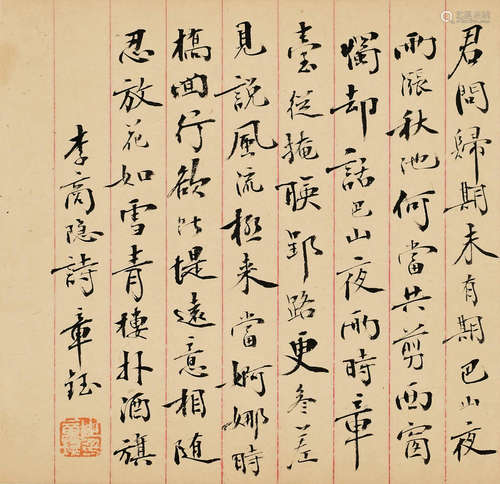 君問歸期未有期巴山夜
雨漲秋池何當共剪西窗
燭却話巴山夜雨時章
臺從掩映郢路更參差
見說風流極来當婀娜時
橋囬行欲断堤遠意相隨
忍放花如雪青樓扑酒旗
李商隐詩 章鈺